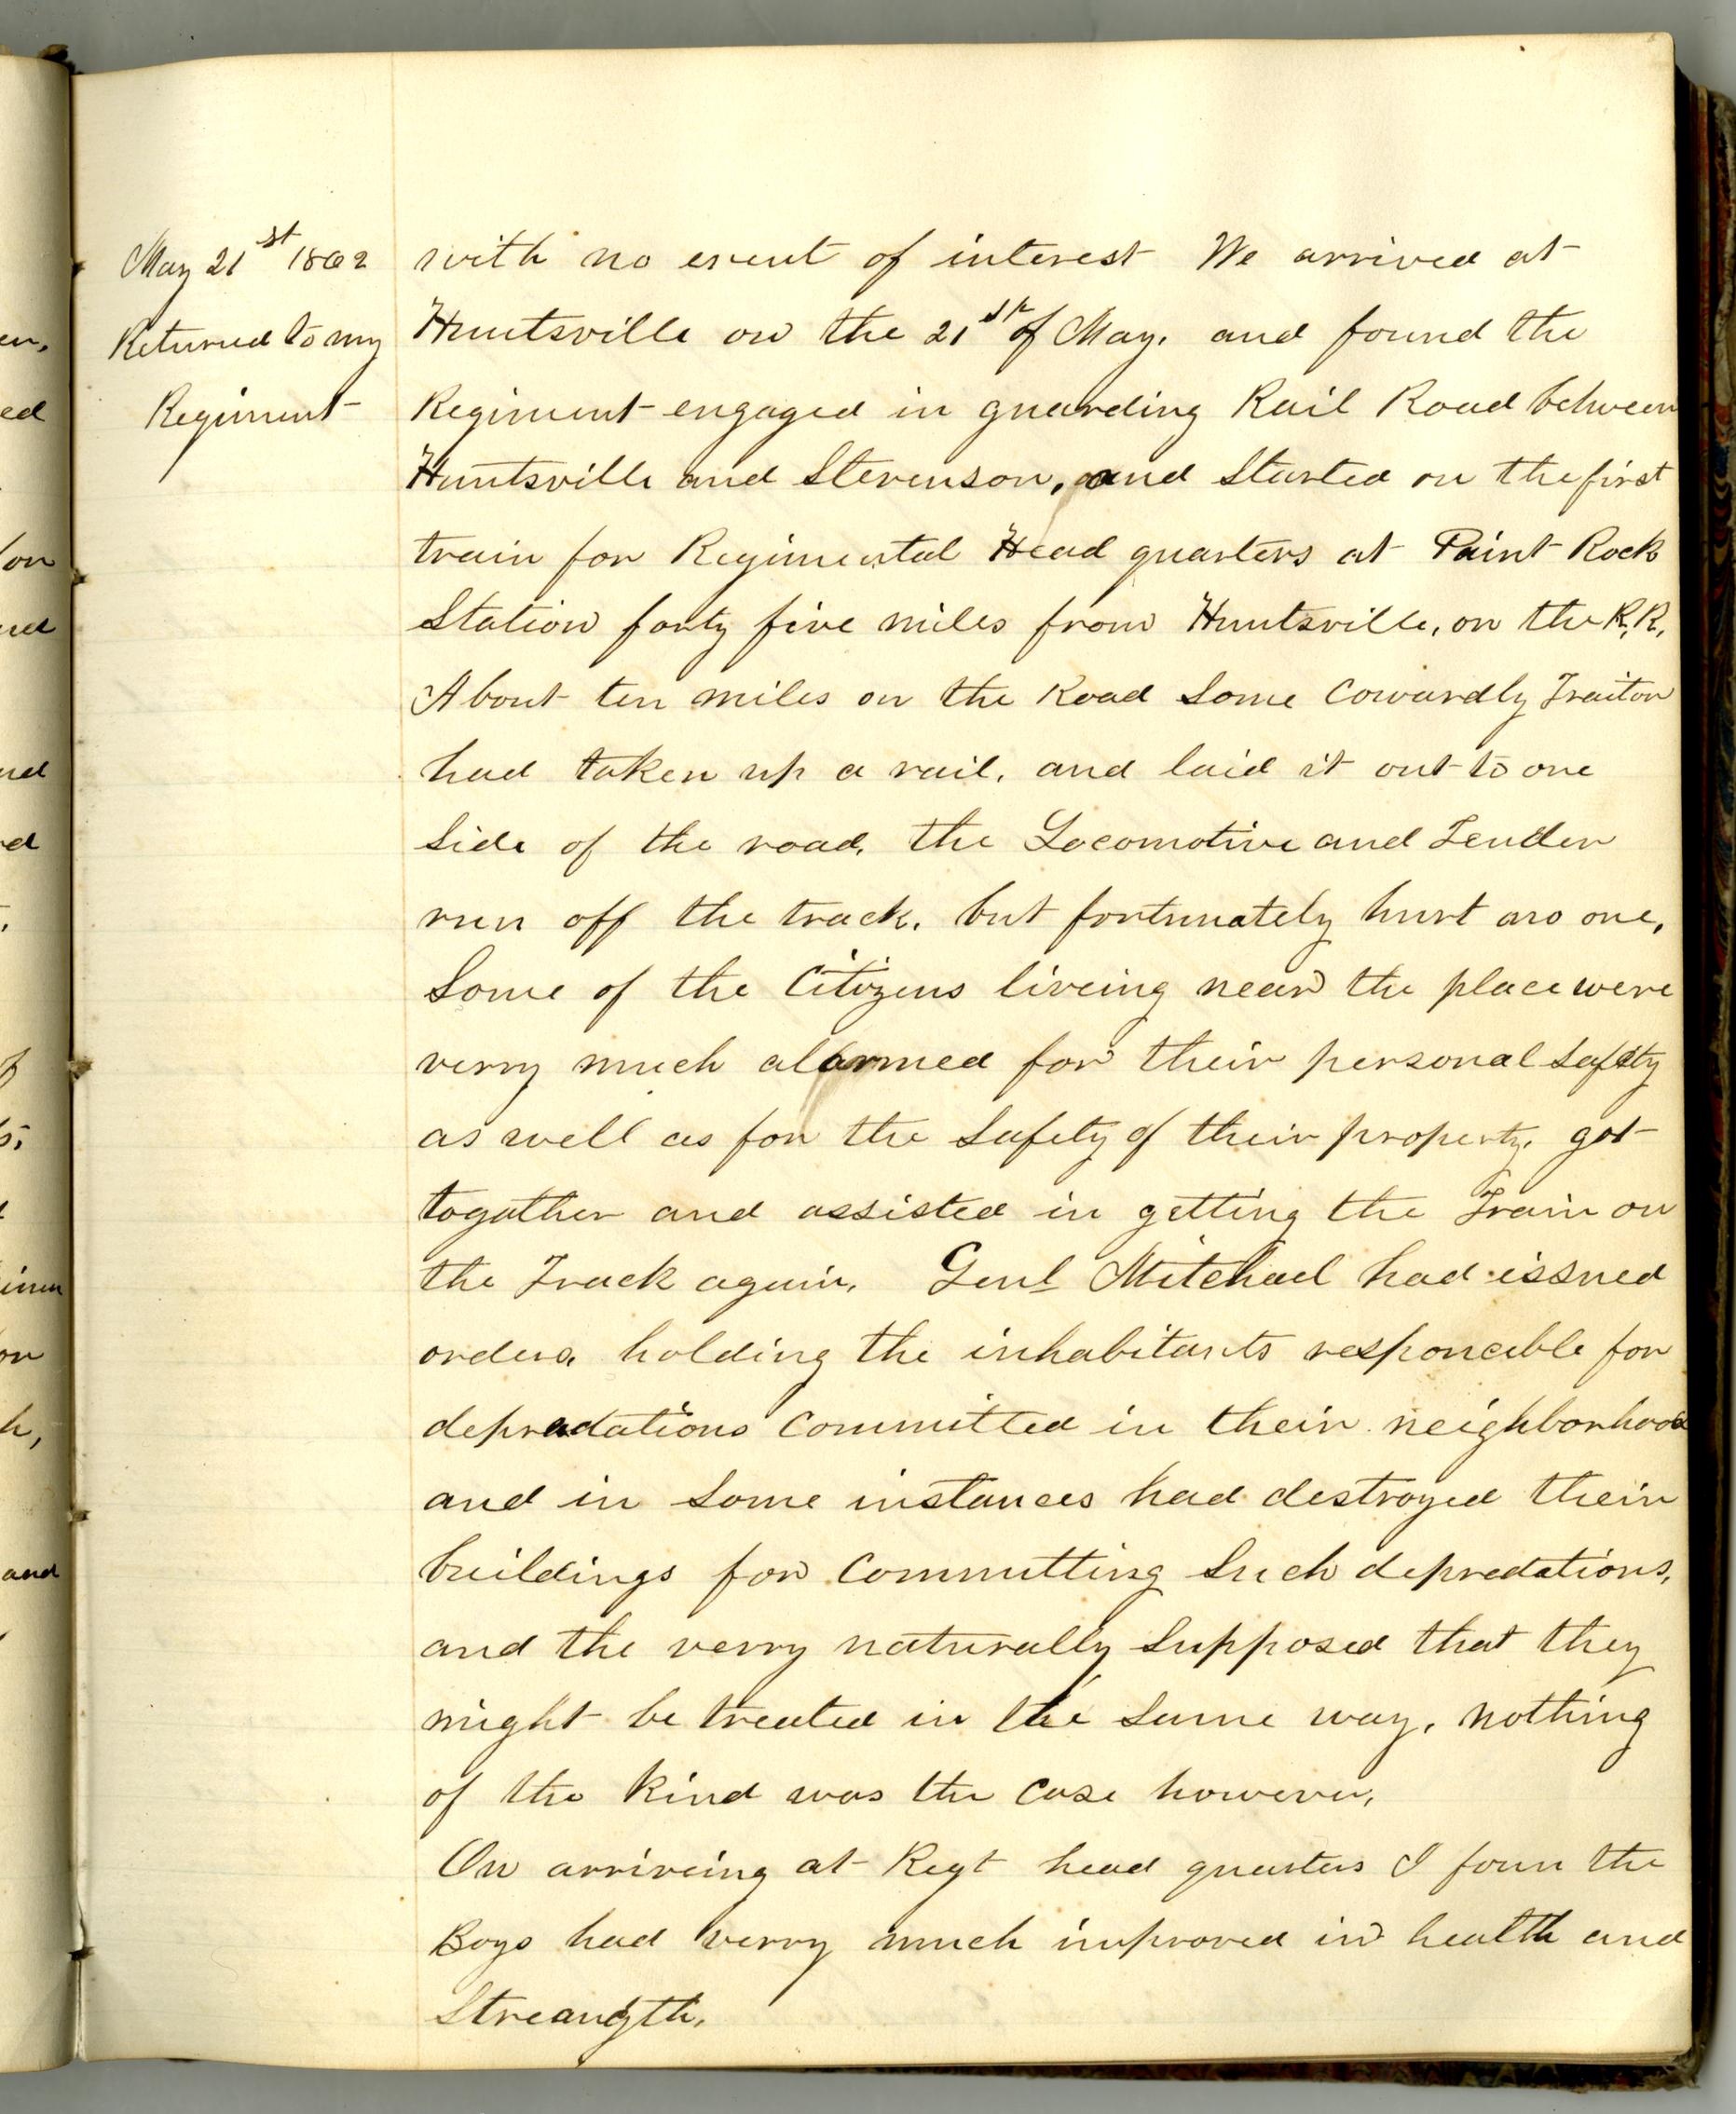 May 21st 1862
Returned to my
Regiment
with no event of interest We arrived at
Huntsville on the 21st of May, and found the
Regiment engaged in guarding Rail Road between
Huntsville and Stevenson, and Started on the first
train for Regimental Head quarters at Paint Rock
Station forty five miles from Huntsville, on the R.R.
About ten miles on the Road Some Cowardly Traitor
had taken up a rail, and laid it out to one
Side of the road, the Locomotive and Tender
run off the track, but fortunately hurt no one,
Some of the Citizens liveing near the place were
verry much alarmed for their personal Safety
as well as for the Safety of their property, got
togather and assisted in getting the Train on
the Track again. Genl Mitchael had issued
orders, holding the inhabitants responcible for
depredations Committed in their neighborhood
and in Some instances had destroyed their
buildings for Committing Such depredations,
and the verry naturally Supposed that they
might be treated in the Same way, nothing
of the Kind was the Case however,
On arriveing at Regt head quarters I foun the
Boys had verry much improved in health and
Streangth,
en,
ed
on
nd
nd
rd
of
or
h,
and